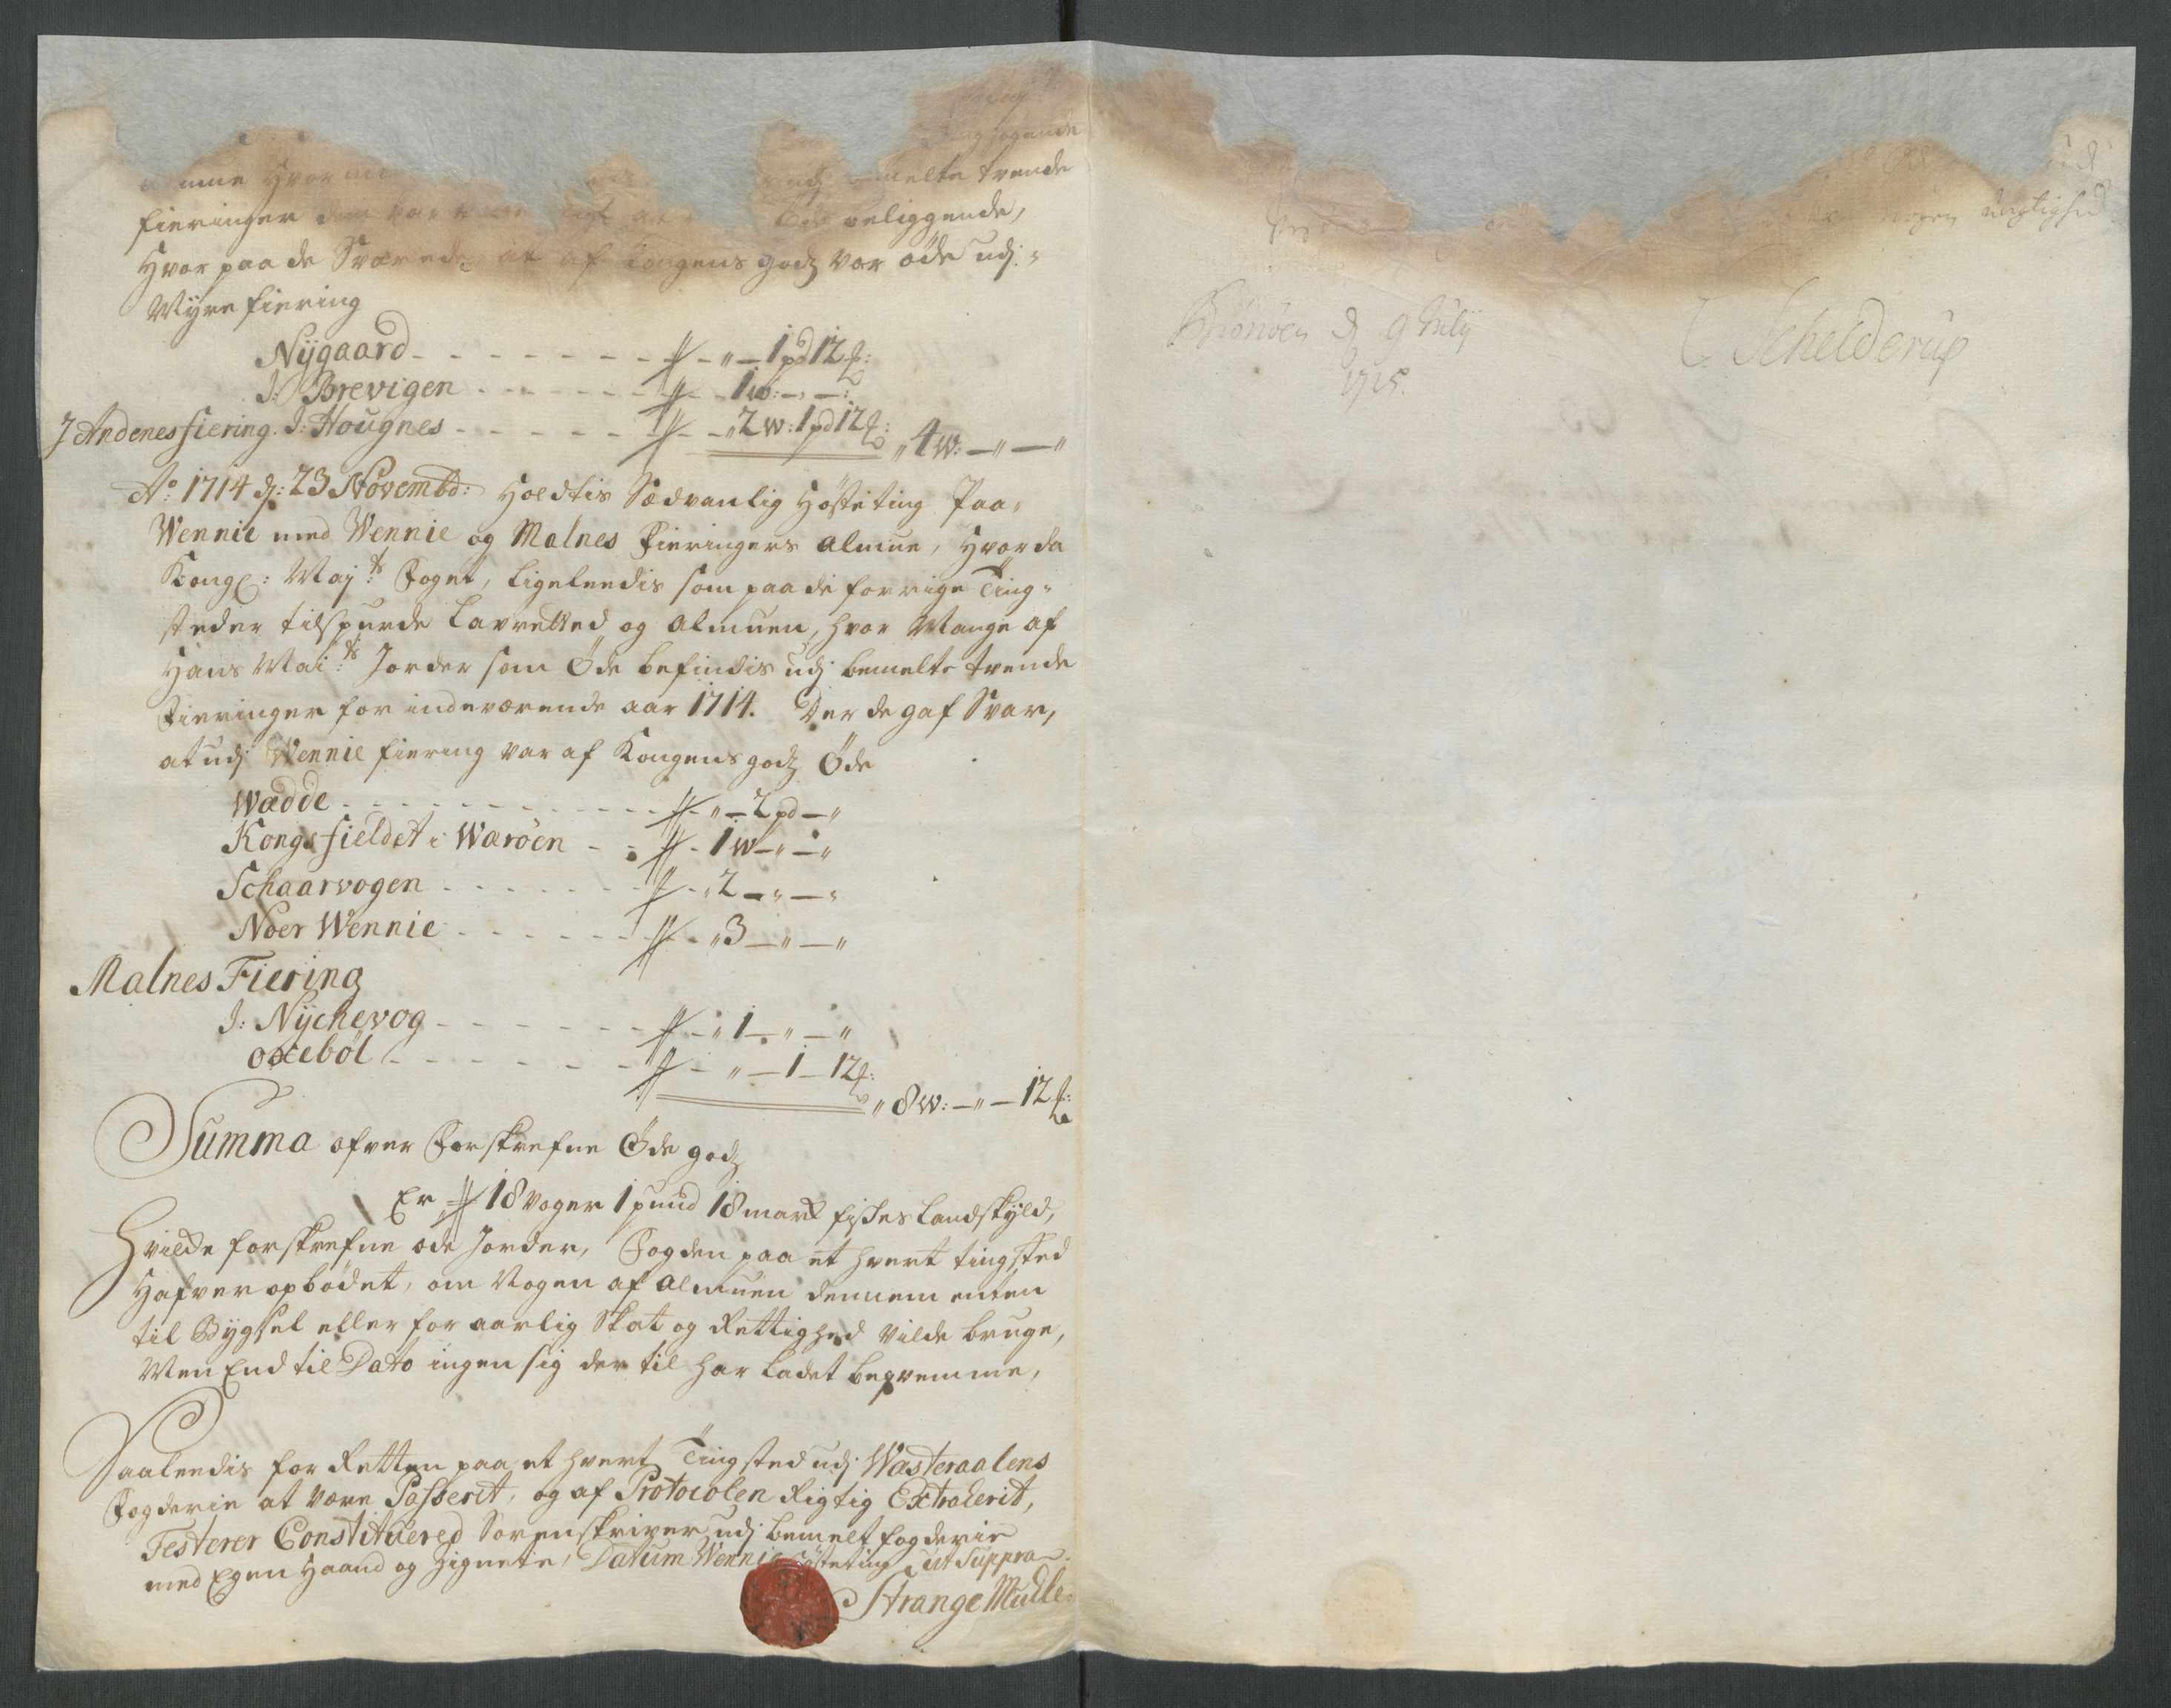 melte trende
fieringer beliggende,
Hvor paa de Svarede, at af Kongens godz var øde udj
Myre fiering
Nÿgaard - - - - - - - „ — 1 pd 12 ℔:
J: Brevigen - - - - - - 1 w: — „ —
J Andenes fiering. J: Hougnes - - - - - - „ 2 w: 1 pd 12 ℔: „ 4 w: — „ — „
Ao: 1714 d: 23 Novembd: Holdtis Sædvanlig Høsteting Paa
Wennie med Wennie og Malnes Fieringers Almue, Hvor da
Kongl: Maj:ts Foget, ligeleedis som paa de forrige Ting-
steder tilspurde Lavretted og Almuen, hvor Mange af
Hans Mai:ts Jorder som Øde befindis udj bemelte trende
Fieringer for indeværende aar 1714. Der de gaf Svar,
at udj Wennie fiering var af Kongens godz Øde
Wædde - - - - - - - - „ — 2 pd — „
Kongsfieldet i Warøen - - 1 w — „ — „
Schaarvogen - - - - - - „ 2 — „ — „
Noer Wennie - - - - - - „ 3 — „ — „
Malnes Fiering
J: Nÿchevog - - - - - - „ 1 — „ — „
oxebøl - - - - - - „ — 1 — 12 ℔:
„ 8 w: — „ — 12 ℔:
Summa ofver Forskrefne Øde godz
Er 18 voger 1 pund 18 mark fiskes Landskÿld,
Hvilde forskrefne øde Jorder, Fogden paa et hvert tingsted
Hafver opbødet, om Nogen af Almuen dennem enten
til Bygsel eller for aarlig Skat og Rettighed vilde bruge,
Men End til Dato ingen sig der til har ladet beqvemme,
Saaleedis for Retten paa et hvert Tingsted udj Wasteraalens
Fogderie at være Passerit, og af Protocolen Rigtig Extraherit,
Testerer Constituered Sorenskriver udj bemelt fogderie
med Egen Haand og Zignete, Datum Wennie Høsteting ut Suppra
Strange Muhle
nogen rigtighed
Brønøen d 9 July
1715.
C. Schelderup